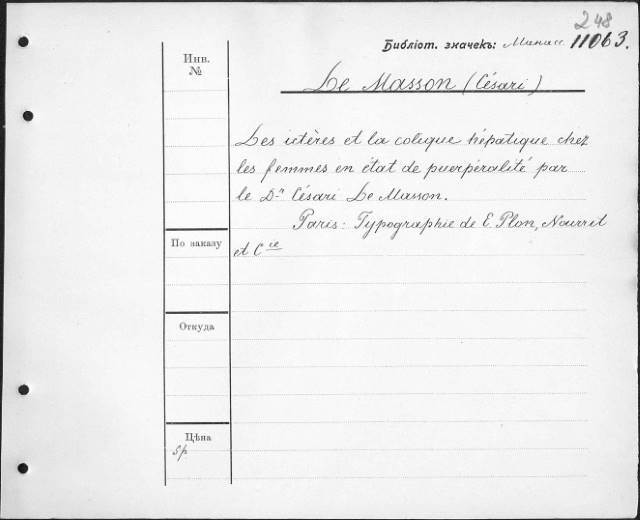 248
Библіот. значекъ: Минис. 11063.
Инв.
№
Le Masson (Césari)
Les ictères et la colique hépatique chez
les femmes en état de puerpéralité par
le D.r Césari Le Masson.
Paris: Typographie de E. Plon, Nourrit
et Cie
По заказу
Откуда
Цѣна
5р